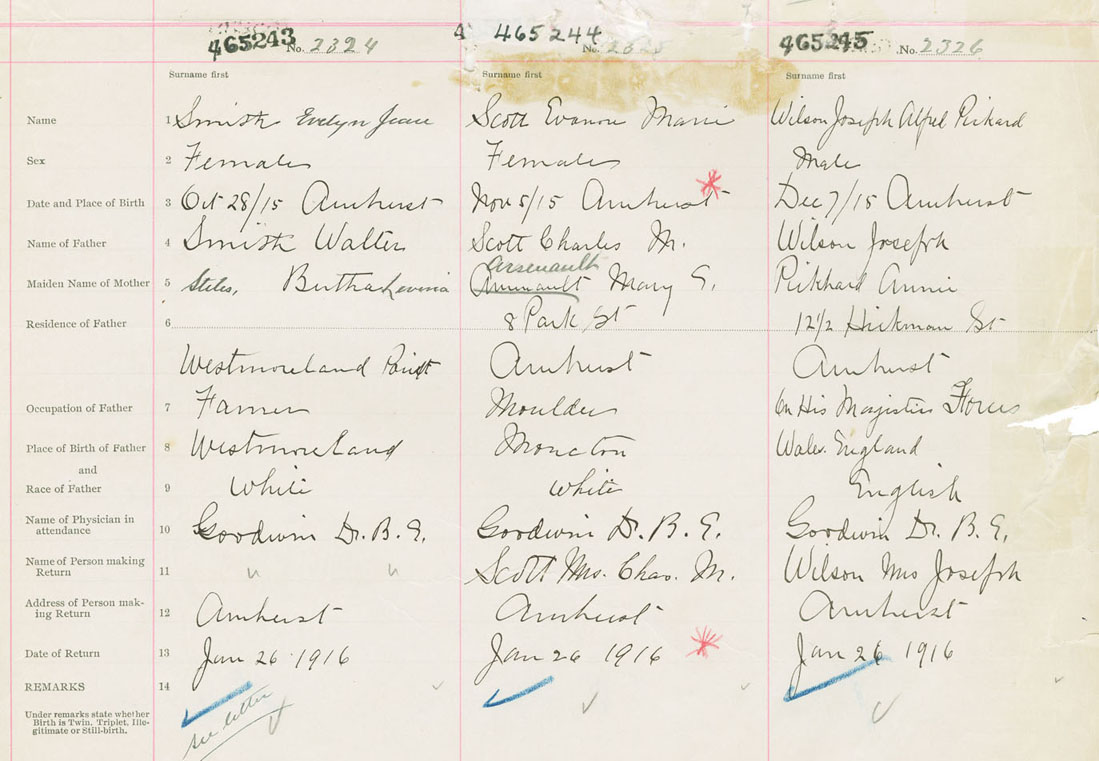 465243 No. 2324 465244 No. 465245 No. 2326
Surname first Surname first Surname first
Name 1 Smith Evelyn Jean Scott Evanon Marie Wilson Joseph Alfred Rikard
Sex 2 Female Female Male
Date and Place of Birth 3 Oct 28/15 Amherst Nov 5/15 Amherst Dec 7/15 Amherst
Name of Father 4 Smith Walter Scott Charles M. Wilson Joseph
Arsenault
Maiden Name of Mother 5 Stiles, Bertha Levinia Mary E. Rikhard Annie
Residence of Father 6 8 Park St 12 1/2 Hickman St
Westmoreland Point Amherst Amherst
Occupation of Father 7 Farmer Moulder On His Magisties Forces
Place of Birth of Father 8 Westmoreland Moncton Wales. England
and
Race of Father 9 White White English
Name of Physician in
attendance 10 Goodwin Dr. B. E. Goodwin Dr. B. E. Goodwin Dr. B. E.
Name of Person making
Return 11 " " Scott Mrs. Chas. M. Wilson Mrs Joseph
Address of Person mak-
ing Return 12 Amherst Amherst Amherst
Date of Return 13 Jan 26 1916 Jan 26 1916 Jan 26 1916
REMARKS 14
see letter
Under remarks state whether
Birth is Twin, Triplet, Ille-
gitimate or Still-birth.